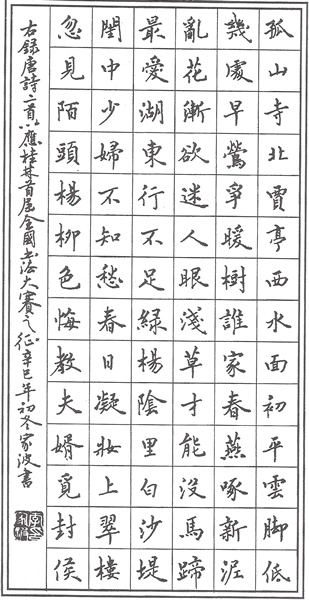 孤山寺北賈亭西水面初平雲脚低
幾處早鶯爭暖樹誰家春燕啄新泥
亂花漸欲迷人眼淺草才能没馬蹄
最愛湖東行不足綠楊陰里白沙堤
閨中少婦不知愁春日凝妝上翠樓
忽見陌頭楊柳色悔教夫婿覓封侯
右錄唐詩二首以應桂林首屆全國书法大賽之征辛巳年初冬家波書